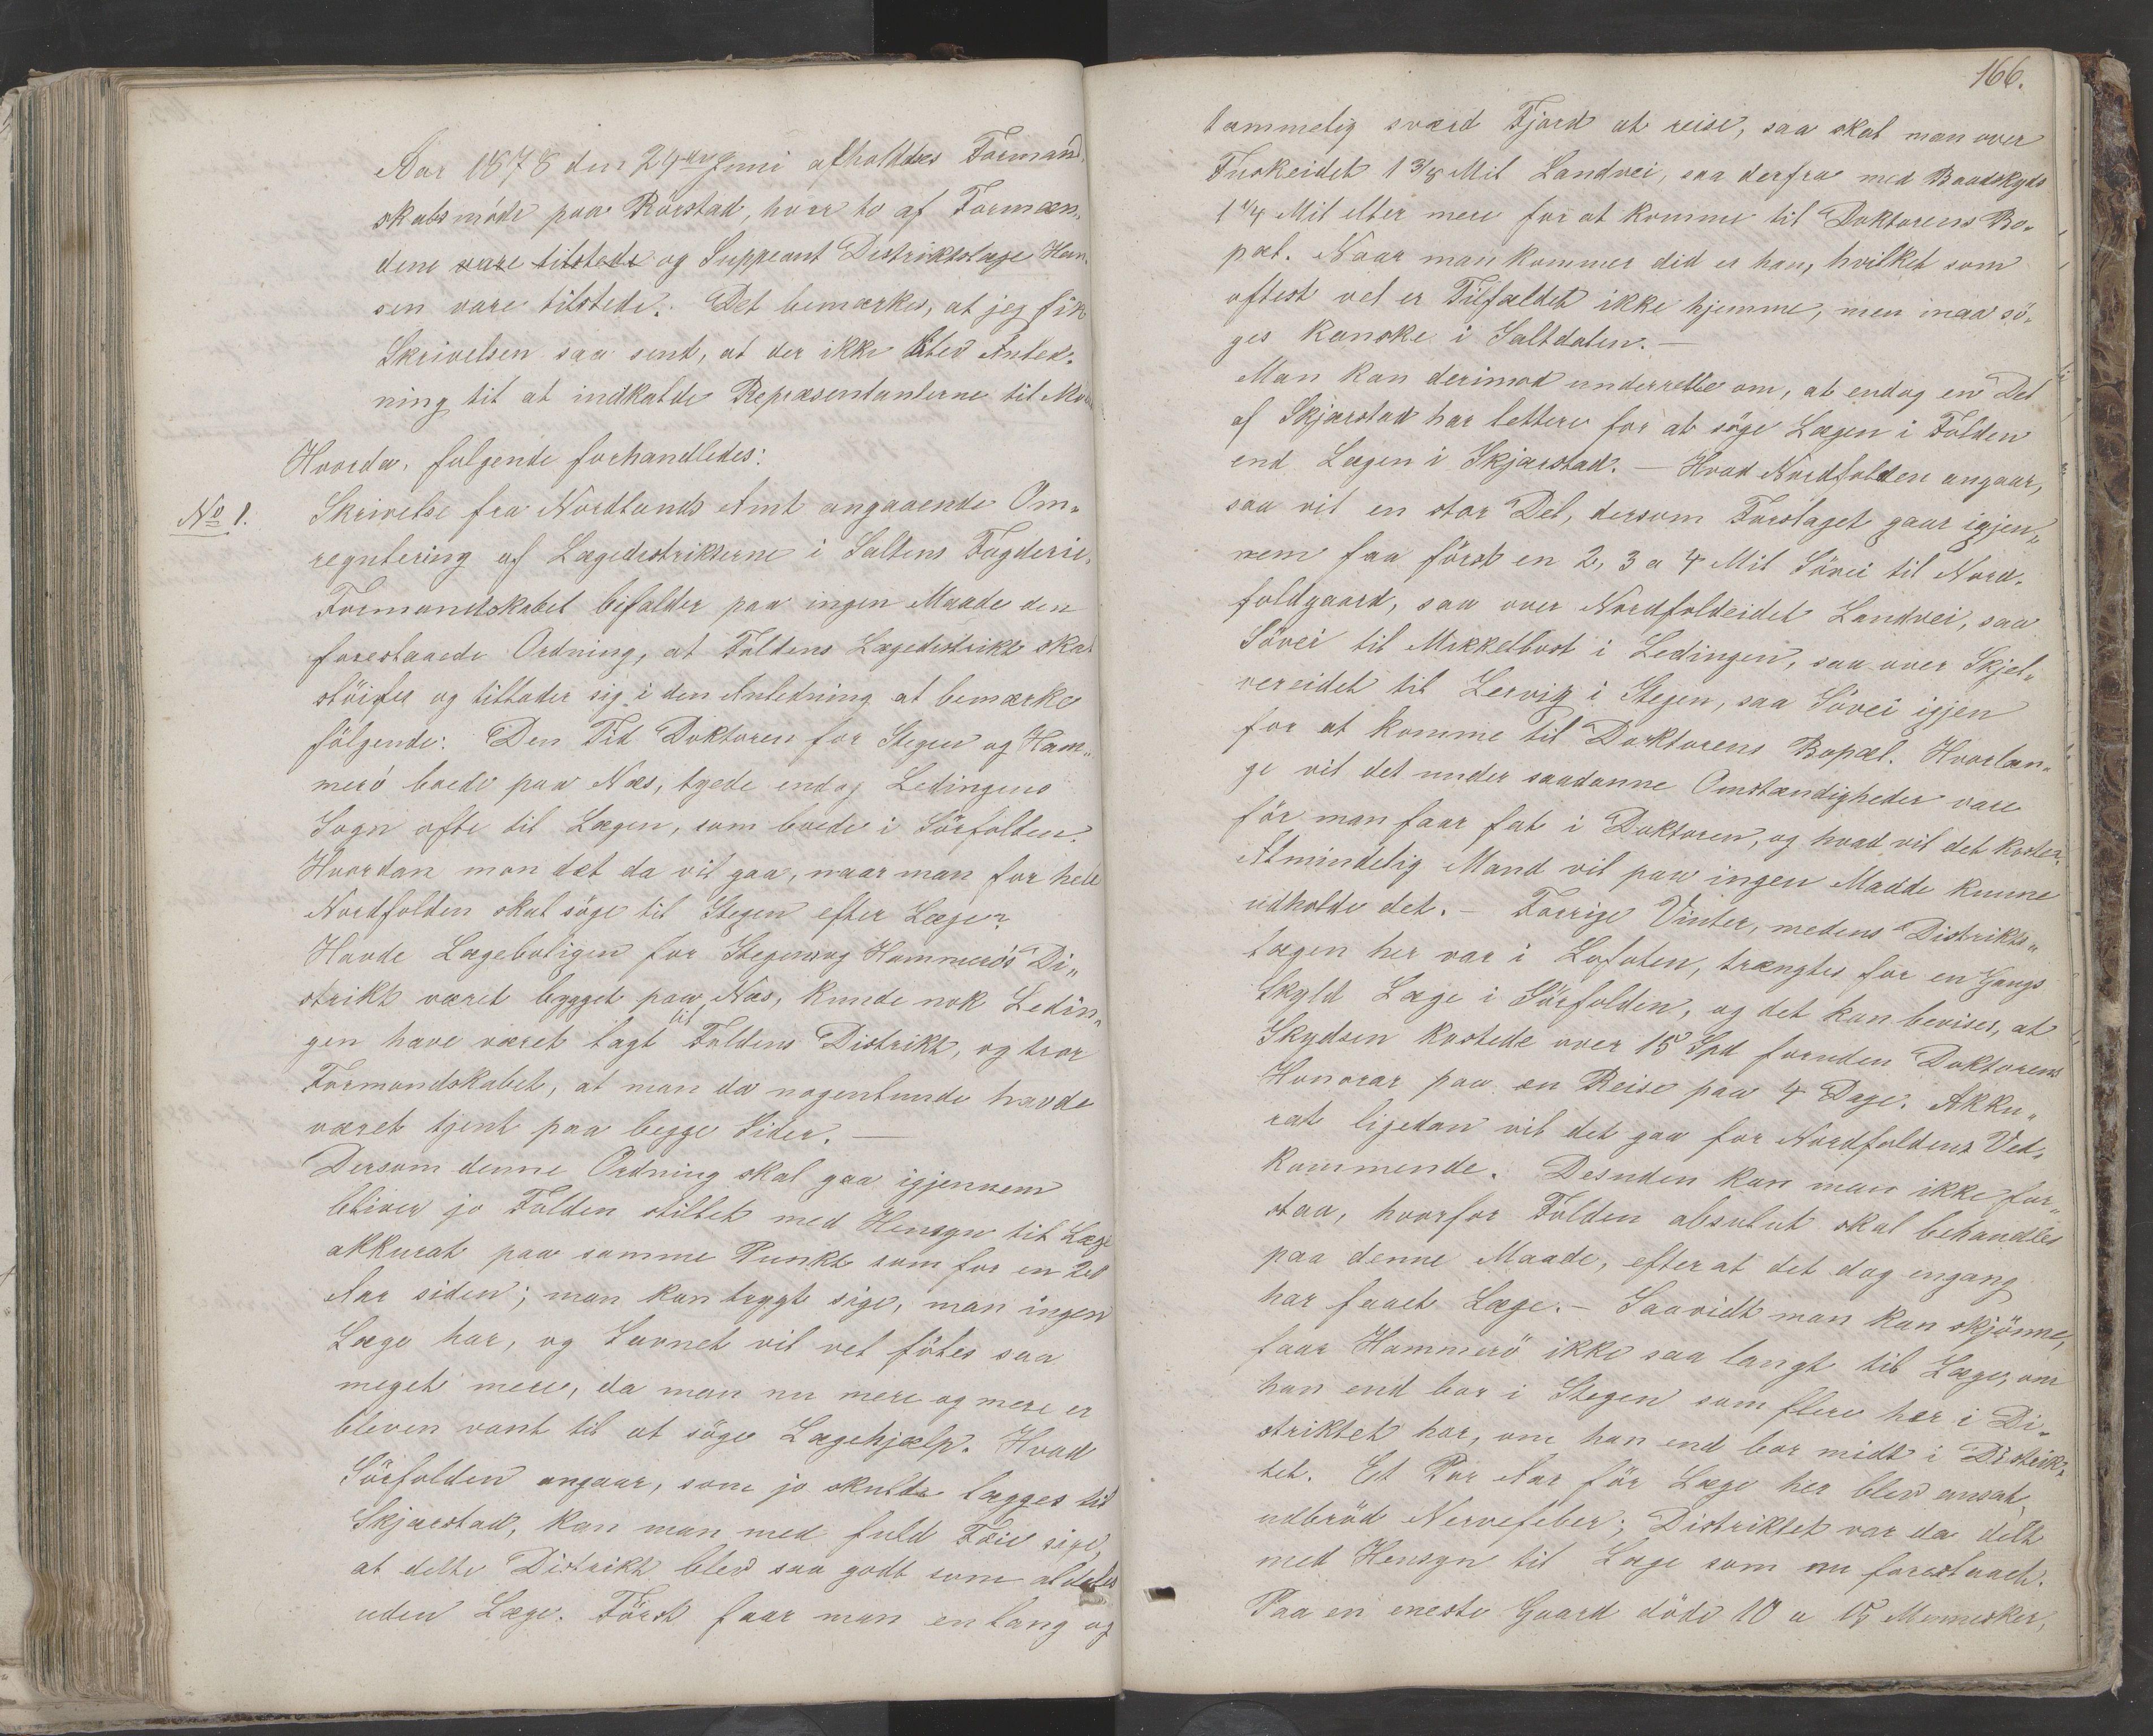 Aar 1878 den 29de Juni afholdtes Formand-
skabsmöde paa Rörstad, hvor to af Formæn-
dene vare tilstede og Suppeant Distriktslæge Han-
sen vare tilstede. Det bemærkes, at jeg fik
Skrivelsen saa sent, at der ikke blev Anled-
ning til at indkalde Repræsendanterne til Möde
Hvorda, følgende forhandledes:
No 1. Skrivelse fra Nordlands Amt angaaende Om-
regulering af Lægedistrikterne i Saltens Fogderie,
Formandskabet bifalder paa ingen Maade den
forestaaede Ordning, at Foldens Lægedistrikt skal
slöifes og tillader sig i den Anledning at bemærke
fölgende: Den Tid Doktoren for Stegen og Ham-
merö boede paa Næs, tyede endog Ledingens
Sogn ofte til Lægen, som boede i Sörfolden.
Hvordan mon det da vil gaa, naar man for hele
Nordfolden skal söge til Stegen efter Læge?
Havde Lægeboligen for Stegen og Hammerö's Di-
strikt været bygget paa Næs, kunde nok Ledin-
gen have været lagt til Foldens Distrikt, og tror
Formandskabet, at man da nogenlunde havde
været tjent paa begge Sider. —
Dersom denne Ordning skal gaa igjennem
bliver jo Folden stillet med Hensyn til Læge
akkurat paa samme Punkt som for en 20
Aar siden; man kan trygt sige, man ingen
Læge har, og Savnet vil vel föles saa
meget mere, da man nu mere og mere er
bleven vant til at söge Lægehjælp. Hvad
Sörfolden angaar, som jo skulde lægges til
Skjærstad, kan man med fuld Föie sige,
at dette Distrikt blev saa godt som aldeles
uden Læge. Först faar man en lang og
166.
temmelig svær Fjord at reise, saa skal man over
Fuskeidet 1 3/8 Mil Landvei, saa derfra med Baadskyds
1 1/4 Mil eller mere for at komme til Doktorens Bo-
pæl. Naar man kommer did er han, hvilket som
oftest vel er Tilfældet ikke hjemme, men maa sö-
ges kanske i Saltdalen. —
Man kan derimod underrette om, at endog en Del
af Skjærstad har lettere for at söge Lægen i Folden
end Lægen i Skjærstad. — Hvad Nordfolden angaar,
saa vil en stor Del, dersom Forslaget gaar igjen-
nem faa först en 2, 3 a 4 Mil Sövei til Nord-
foldgaard, saa over Nordfoldeidet Landvei, saa
Sövei til Mikkelbost i Ledingen, saa over Skjel-
vereidet til Lervig i Stegen, saa Sövei igjen
for at komme til Doktorens Bopæl. Hvorlæn-
ge vil det under saadanne Omstændigheder vare
för man faar fat i Doktoren, og hvad vil det koste?
Almindelig Mand vil paa ingen Maade kunne
udholde det. — Forrige Vinter, medens Distrikts-
lægen her var i Lofoten, trængtes for en Gangs
Skyld Læge i Sörfolden, og det kan bevises, at
Skydsen kostede over 15 Spd foruden Doktorens
Honorar paa en Reise paa 4 Dage. Akku-
rat ligedan vil det gaa for Nordfoldens Ved-
kommende. Desuden kan man ikke for-
staa, hvorfor Folden absolut skal behandles
paa denne Maade, efterat det dog engang
har faaet Læge. — Saavidt man kan skjönne,
faar Hammerö ikke saa langt til Læge, om
han end bor i Stegen som flere her i Di-
striktet har, om han end bor midt i Distrik-
tet. Et Par Aar för Læge her blev ansat,
udbröd Nervefeber; Distriktet var da delt
med Hensyn til Læge som nu forestaaet.
Paa en eneste Gaard döde 10 a 15 Mennesker,